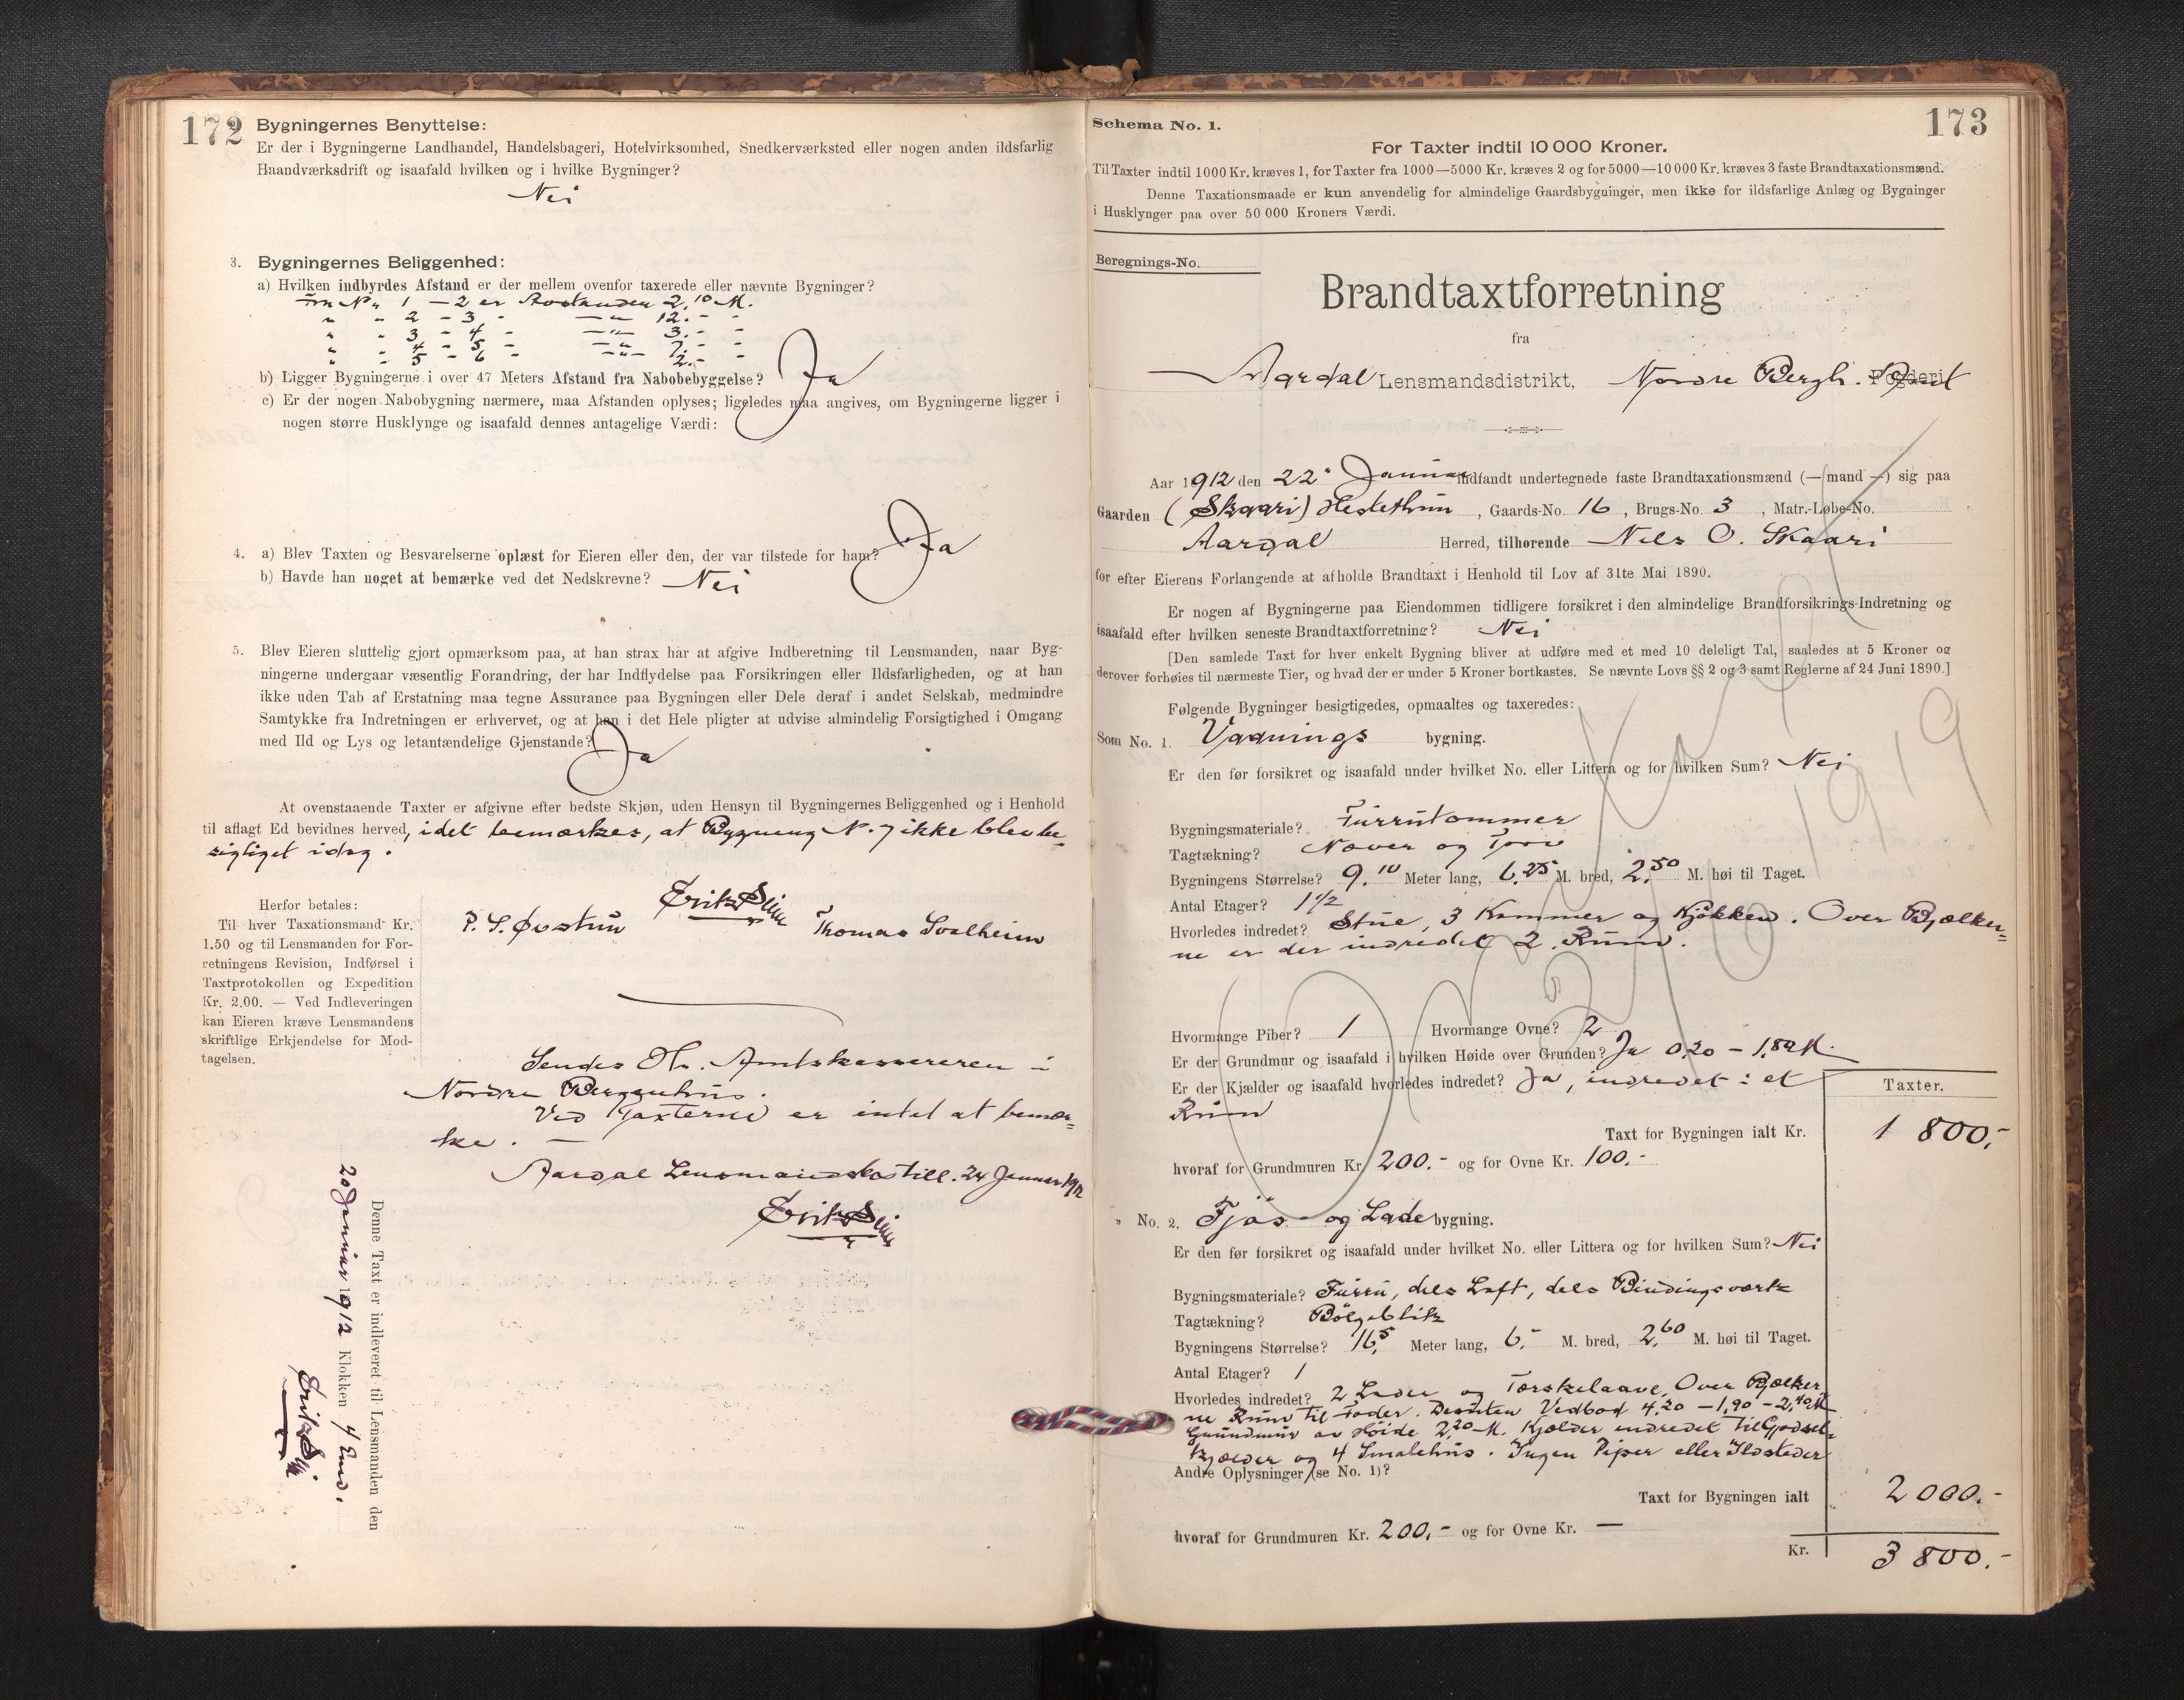 172
Bygningernes Benyttelse:
Er der i Bygningerne Landhandel, Handelsbageri, Hotelvirksomhed, Snedkerværksted eller nogen anden ildsfarlig
Haandværksdrift og isaafald hvilken og i hvilke Bygninger?
Nei
3. Bygningernes Beliggenhed:
a) Hvilken indbyrdes Afstand er der mellem ovenfor taxerede eller nævnte Bygninger?
Fra No 1 – 2 er Avstanden 2,10 M.
" " 2 – 3 - —"— 12.- -
" " 3 – 4 - —"— 3.- -
" " 4 – 5 - —"— 7.- -
" " 5 – 6 - —"— 2.- -
b) Ligger Bygningerne i over 47 Meters Afstand fra Nabobebyggelse? Ja
c) Er der nogen Nabobygning nærmere, maa Afstanden oplyses; ligeledes maa angives, om Bygningerne ligger i
nogen større Husklynge og isaafald dennes antagelige Værdi:
4. a) Blev Taxten og Besvarelserne oplæst for Eieren eller den, der var tilstede for ham? Ja
b) Havde han noget at bemærke ved det Nedskrevne? Nei
5. Blev Eieren sluttelig gjort opmærksom paa, at han strax har at afgive Indberetning til Lensmanden, naar Byg-
ningerne undergaar væsentlig Forandring, der har Indflydelse paa Forsikringen eller Ildsfarligheden, og at han
ikke uden Tab af Erstatning maa tegne Assurance paa Bygningen eller Dele deraf i andet Selskab, medmindre
Samtykke fra Indretningen er erhvervet, og at han i det Hele pligter at udvise almindelig Forsigtighed i Omgang
med Ild og Lys og letantændelige Gjenstande? Ja
At ovenstaaende Taxter er afgivne efter bedste Skjøn, uden Hensyn til Bygningernes Beliggenhed og i Henhold
til aflagt Ed bevidnes herved, idet bemærkes, at Bygning N. 7 ikke blev be-
sigtiget idag.
P. S. Øvstun Thomas Svalheim
Herfor betales:
Til hver Taxationsmand Kr.
1.50 og til Lensmanden for For-
retningens Revision, Indførsel i
Taxtprotokollen og Expedition
Kr. 2.00. — Ved Indleveringen
kan Eieren kræve Lensmandens
skriftlige Erkjendelse for Mod-
tagelsen.
Sendes Hr. Amtskassereren i
Nordre Bergenhus.
Ved Taxterne er intet at bemær-
ke. —
Aardal Lensmandsbestill. 24 Januar 1912
Denne Taxt er indleveret til Lensmanden den
20 Januar 1912 Klokken 4 Emd.
173
Schema No. 1.
For Taxter indtil 10 000 Kroner.
Til Taxter indtil 1000 Kr. kræves 1, for Taxter fra 1000—5000 Kr. kræves 2 og for 5000—10 000 Kr. kræves 3 faste Brandtaxationsmænd.
Denne Taxationsmaade er kun anvendelig for almindelige Gaardsbygninger, men ikke for ildsfarlige Anlæg og Bygninger
i Husklynger paa over 50 000 Kroners Værdi.
Beregnings-No.
Brandtaxtforretning
fra
Aardal Lensmandsdistrikt, Nordre Bergh. Fogderi Amt
Aar 1912 den 22' Januar indfandt undertegnede faste Brandtaxationsmænd (— mand —) sig paa
Gaarden (Skaari) Hestethun, Gaards-No. 16, Brugs-No. 3, Matr.-Løbe-No.
Aardal Herred, tilhørende Nils O. Skaari
for efter Eierens Forlangende at afholde Brandtaxt i Henhold til Lov af 31te Mai 1890.
Er nogen af Bygningerne paa Eiendommen tidligere forsikret i den almindelige Brandforsikrings-Indretning og
isaafald efter hvilken seneste Brandtaxtforretning? Nei
[Den samlede Taxt for hver enkelt Bygning bliver at udføre med et med 10 deleligt Tal, saaledes at 5 Kroner og
derover forhøies til nærmeste Tier, og hvad der er under 5 Kroner bortkastes. Se nævnte Lovs §§ 2 og 3 samt Reglerne af 24 Juni 1890.]
Følgende Bygninger besigtigedes, opmaaltes og taxeredes:
Som No. 1. Vaanings bygning.
Er den før forsikret og isaafald under hvilket No. eller Littera og for hvilken Sum? Nei
Bygningsmateriale? Furrutømmer
Tagtækning? Næver og Torv
Bygningens Størrelse? 9.10 Meter lang, 6,25 M. bred, 2,50 M. høi til Taget.
Antal Etager? 1 1/2
Hvorledes indredet? Stue, 3 Kammer og Kjøkken. Over Bjælker-
ne er der indredet 2 Rum.
1919
Hvormange Piber? 1 Hvormange Ovne? 2
Er der Grundmur og isaafald i hvilken Høide over Grunden? Ja 0,20 – 1,80 M.
Er der Kjælder og isaafald hvorledes indredet? Ja, indredet i et
Rum
Taxter.
Taxt for Bygningen ialt Kr. 1 800,-
hvoraf for Grundmuren Kr. 200.- og for Ovne Kr. 100.-
" No. 2. Fjøs- og Lade bygning.
Er den før forsikret og isaafald under hvilket No. eller Littera og for hvilken Sum? Nei
Bygningsmateriale? Furru, dels Laft, dels Bindingsværk
Tagtækning? Bølgeblik
Bygningens Størrelse? 16,5 Meter lang, 6,- M. bred, 2,60 M. høi til Taget.
Antal Etager? 1
Hvorledes indredet? 2 Lader og Tørskelaave. Over Bjælker
ne Rum til Foder. Desuten Vedbod 4,20 – 1,90 – 2,40 M
Grundmur av Høide 2,20 M. Kjælder indredet til Gjødsel-
kjælder og 4 Smalehus. Ingen Piper eller Ildsteder
Andre Oplysninger (se No. 1)?
Taxt for Bygningen ialt 2 000.-
hvoraf for Grundmuren Kr. 200,- og for Ovne Kr. —
Kr. 3 800.-